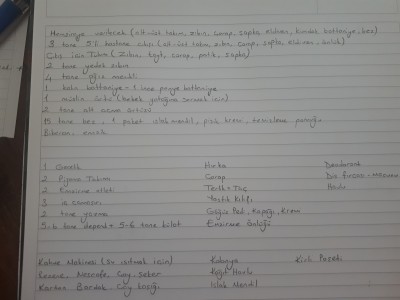 Hemşireye verilecek (alt-üst takım, zıbın, çorap, şapka, eldiven, kundak battaniye, bez)
3 tane hastane çıkışı (alt-üst takım, zıbın, çorap, şapka, eldiven, önlük)
Çıkış için Takım (zıbın, çorap, patik, şapka)
2 tane yedek zıbın
4 tane ağız mendili
1 kalın battaniye + 1 tane penye battaniye
1 müslin örtü (bebek yatağına sermek için)
2 tane alt açma örtüsü
15 tane bez, 1 paket ıslak mendil, pişik kremi, temizleme pamuğu
Biberon, emzik
1 Gecelik Hırka Deodorant
2 Pijama Takımı Çorap Diş fırçası - macunu
2 Emzirme atleti Terlik + Taç Havlu
3 iç çamaşırı Yastık Kılıfı
2 tane yazma Göğüs Pedi, Kapağı, Krem
5-6 tane depend + 5-6 tane külot Emzirme Önlüğü
Kahve Makinesi (Su ısıtmak için) Kolonya Kirli Poşedi
Kahve, Nescafe, Çay, Şeker Kağıt Havlu
Karton Bardak, Çay kaşığı Islak Mendil